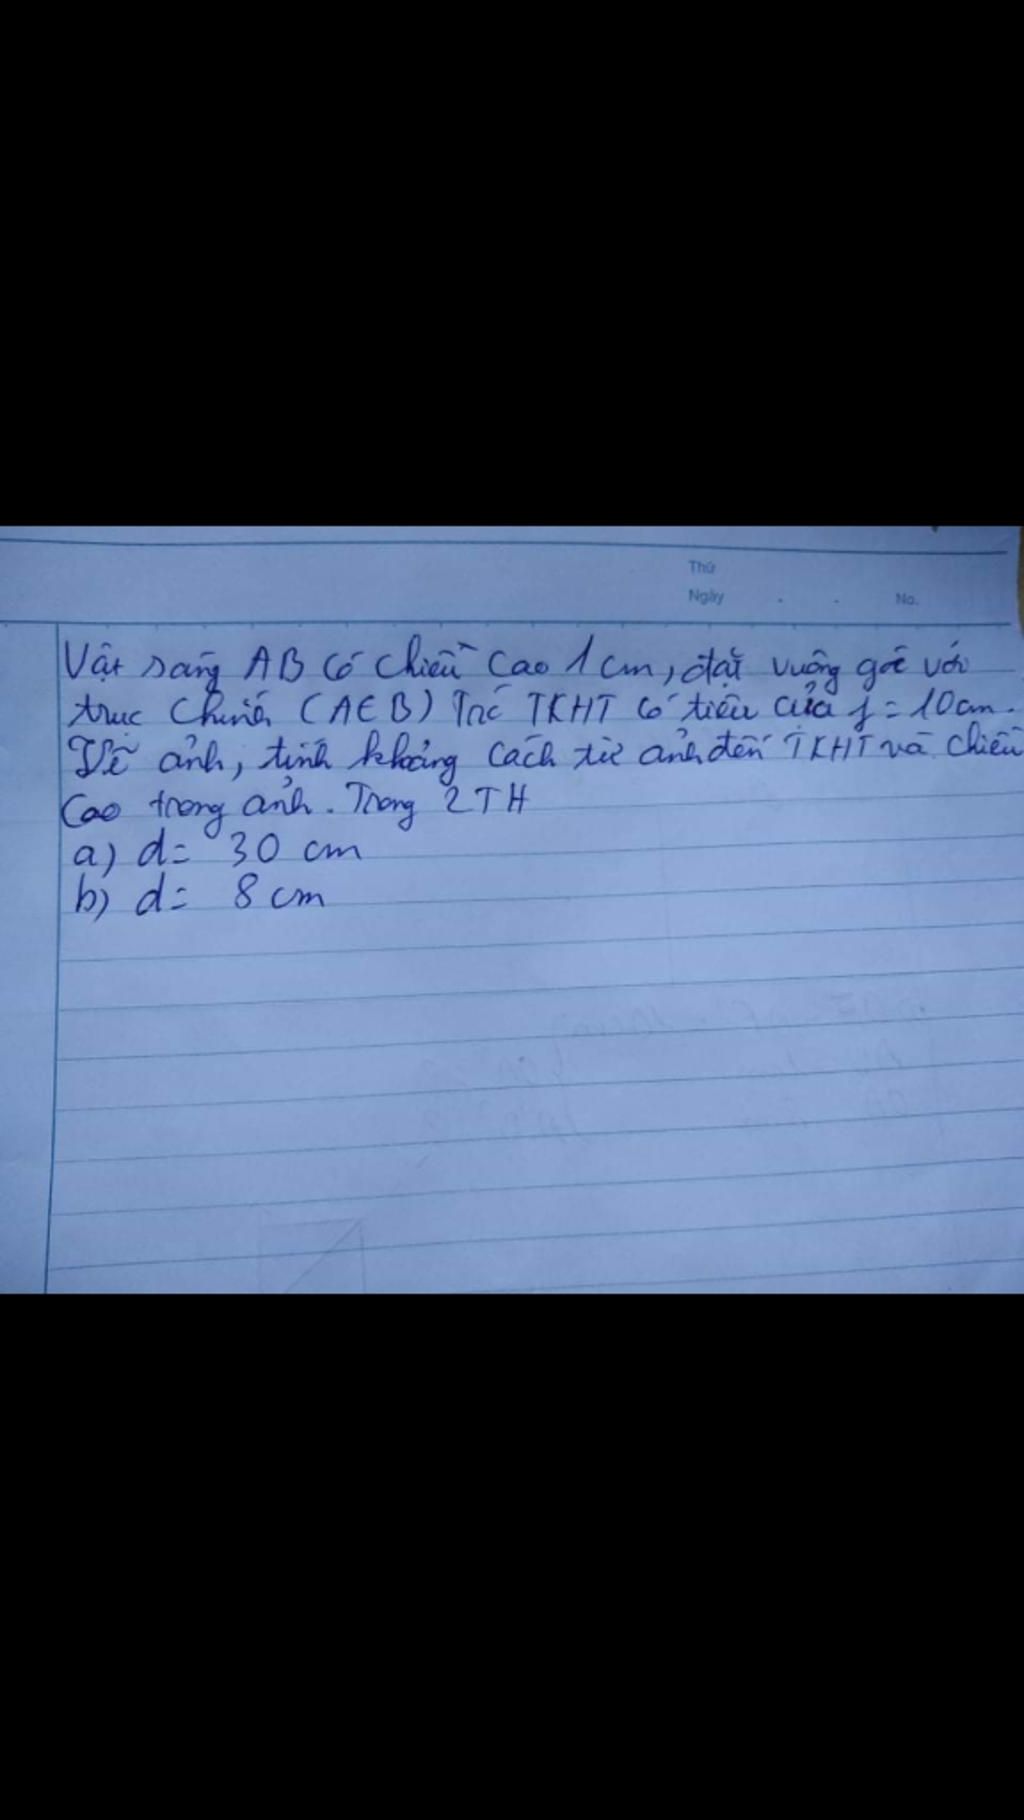 Thứ
Ngày . . No.
Vật sáng AB có chiều cao 1 cm, đặt vuông góc với
trục chính (A∈B) Trc TKHT có tiêu của f = 10cm.
Vẽ ảnh, tính khoảng cách từ ảnh đến TKHT và chiều
cao trong ảnh. Trong 2TH
a) d= 30 cm
b) d= 8 cm